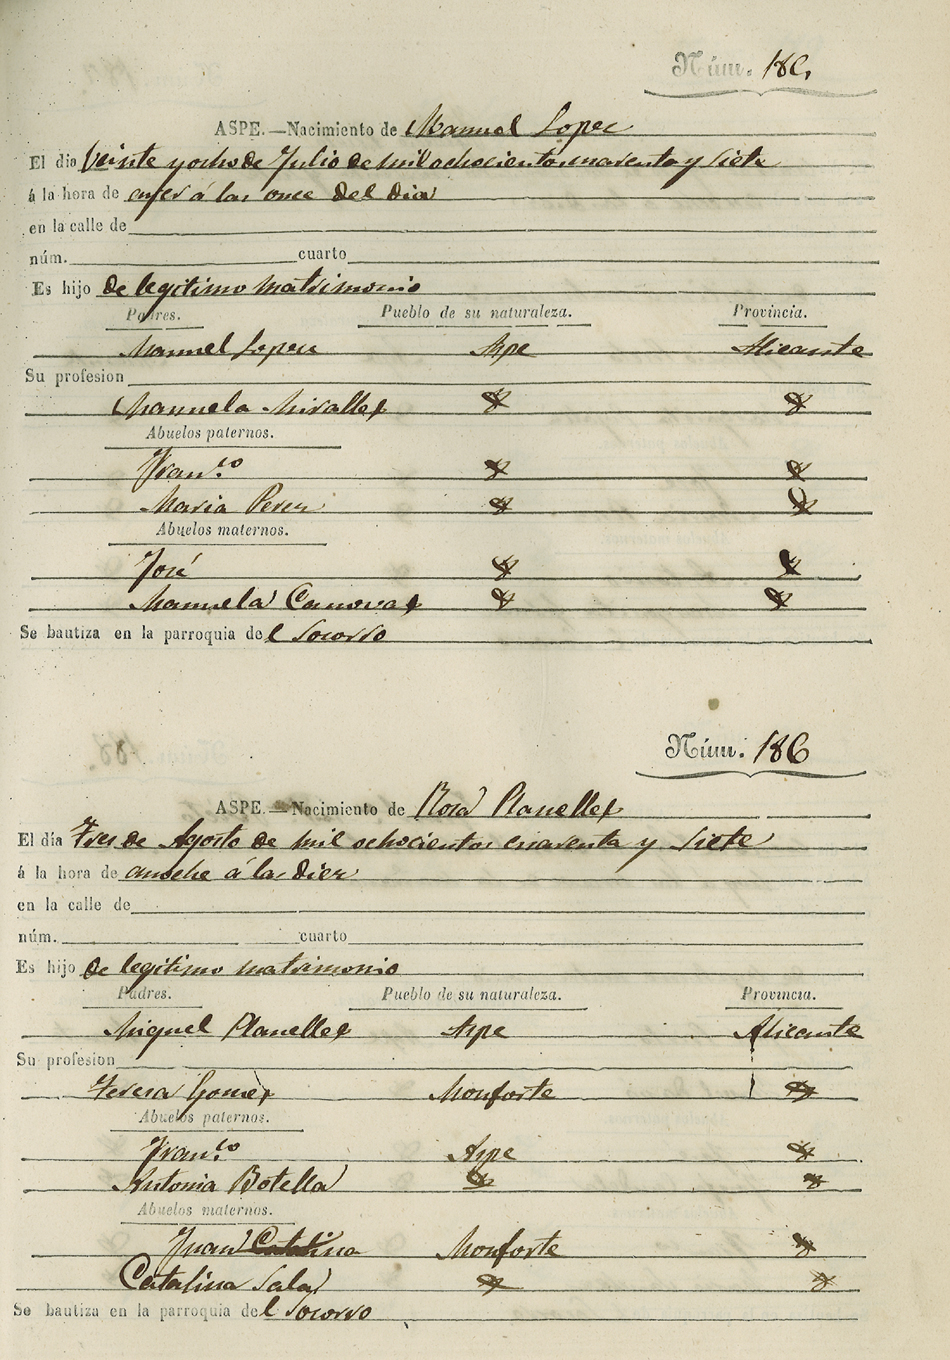 Núm. 180,
ASPE.—Nacimiento de Manuel Lopez
El dia Veinte y ocho de Julio de mil ochocientos cuarenta y siete
á la hora de ayer á las once del dia
en la calle de
núm. cuarto
Es hijo de legitimo matrimonio
Padres. Pueblo de su naturaleza. Provincia.
Manuel Lopez Aspe Alicante
Su profesion
Manuela Miralles
Abuelos paternos.
Fran.co
Maria Perez
Abuelos maternos.
José
Manuela Canovas
Se bautiza en la parroquia del Socorro
Núm. 186
ASPE.—Nacimiento de Rosa Planelles
El día Tres de Agosto de mil ochocientos cuarenta y siete
á la hora de anoche á las diez
en la calle de
núm. cuarto
Es hijo de legitimo matrimonio
Padres. Pueblo de su naturaleza. Provincia.
Miguel Planelles Aspe Alicante
Su profesion
Teresa Gomez Monforte
Abuelos paternos.
Fran.co Aspe
Antonia Botella
Abuelos maternos.
Juan Catalina Monforte
Catalina Sala
Se bautiza en la parroquia del Socorro